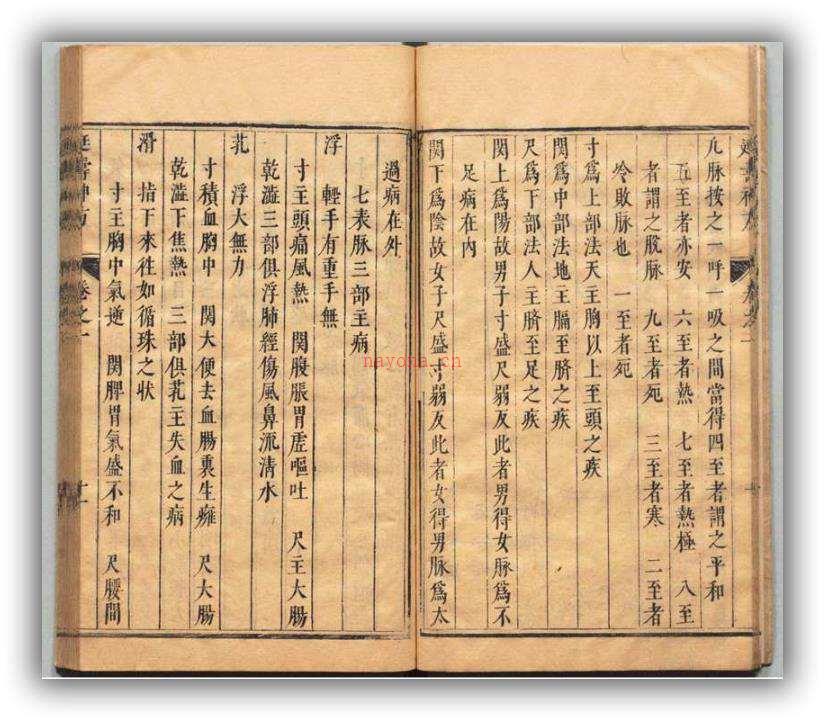 凡脉按之一呼一吸之間當得四至者謂之平和
五至者亦安 六至者熱 七至者熱極 八至
者謂之脱脉 九至者死 三至者寒 二至者
冷敗脉也 一至者死
寸爲上部法天主胸以上至頭之疾
関爲中部法地主膈至臍之疾
尺爲下部法人主臍至足之疾
関上爲陽故男子寸盛尺弱反此者男得女脉爲不
足病在内
関下爲陰故女子尺盛寸弱反此者女得男脉爲太
過病在外
七表脉三部主病
浮 輕手有重手無
寸主頭痛風熱 関腹脹胃虚嘔吐 尺主大腸
乾澁三部俱浮肺經傷風鼻流清水
芤 浮大無力
寸積血胸中 関大便去血腸裏生癰 尺大腸
乾澁下焦熱 三部俱芤主失血之病
滑 指下來徃如循珠之状
寸主胸中氣逆 関脾胃氣盛不和 尺腰間
延壽神方 卷之一 十一
nayona.cn